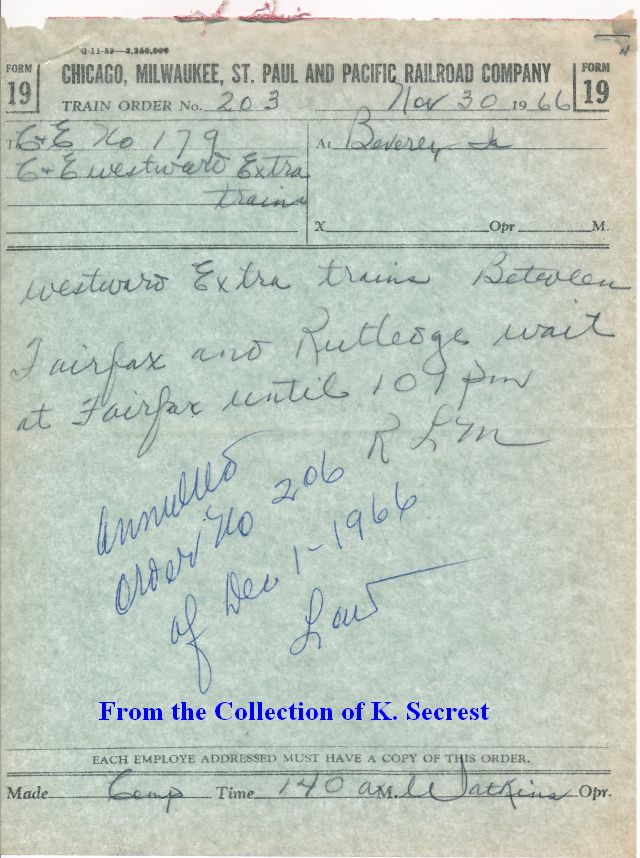 Q-11-59—3,250,000
FORM 19
CHICAGO, MILWAUKEE, ST. PAUL AND PACIFIC RAILROAD COMPANY
FORM 19
TRAIN ORDER No. 203 Nov 30 1966
To C+E No 179
C+E westward Extra
trains
At Beverly Ia
X Opr M.
westward Extra trains Between
Fairfax and Rutledge wait
at Fairfax until 101 pm
R L M
annulled
order No 206
of Dec 1-1966
From the Collection of K. Secrest
EACH EMPLOYE ADDRESSED MUST HAVE A COPY OF THIS ORDER.
Made Comp Time 140 a M. Watkins Opr.